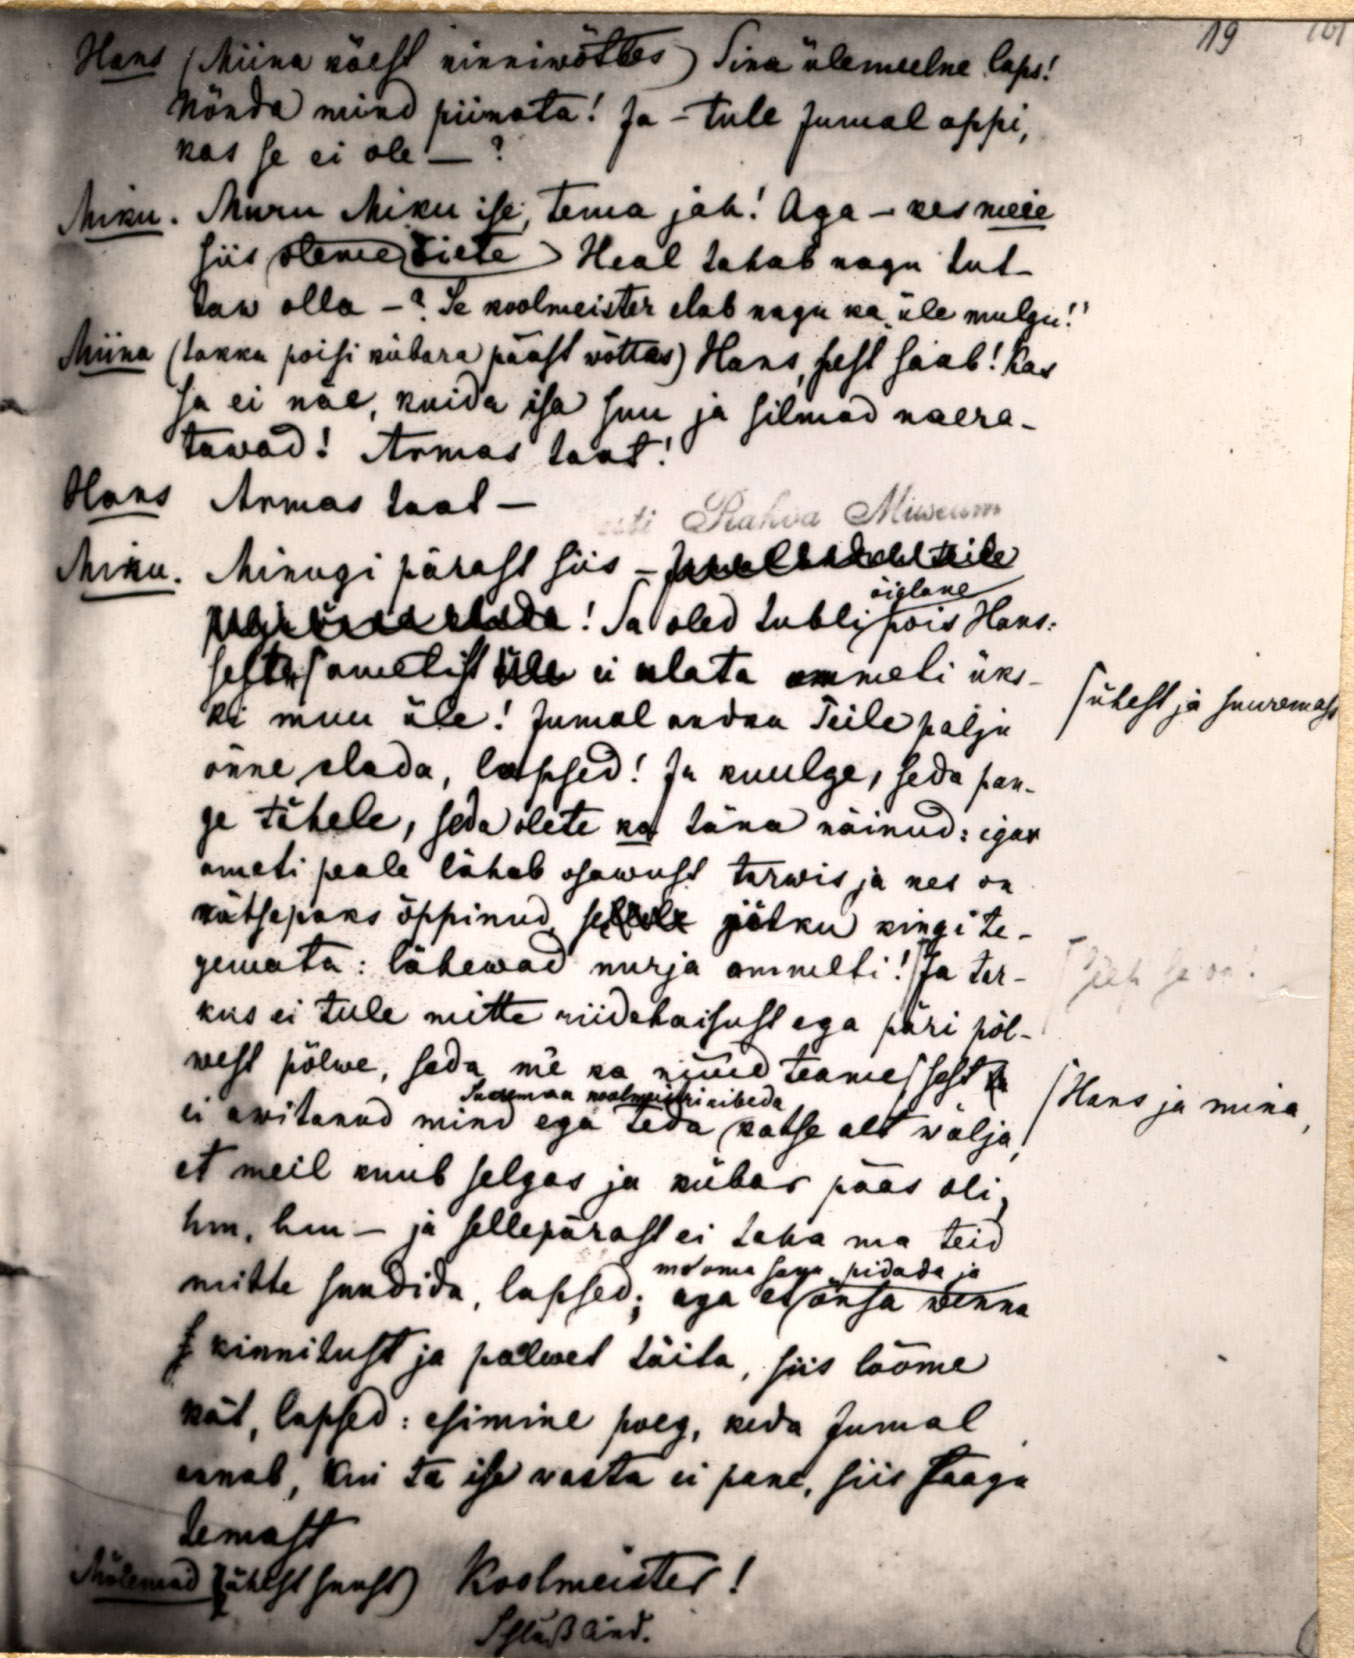 19
Hans (Miina käest kinniwõttes) Sina ülemeelne laps!
Nõnda mind piinata! Ja – tule Jumal appi,
kas se ei ole – ?
Miku. Muru Miku ise, tema jah! Aga – kes meie
siis oleme õiete Heal tahab nagu tut-
taw olla – ? Se koolmeister elab nagu ka „üle mulgu!"
Miina (takka poisi kübara pääst wõttes) Hans, sest saab! Kas
sa ei näe, kuida isa suu ja silmad naera-
tawad! Armas taat!
Hans Armas taat –
Eesti Rahva Museum
Miku. Minugi pärast siis –
õiglane
! Sa oled tubli pois Hans:
sest ametist üle ei ulata ommeti üks-
ühest ja suuremast
ki muu üle! Jumal andku Teile palju
õnne elada, lapsed! Ja kuulge, seda pan-
ge tähele, seda olete ka täna näinud: igas
ameti peale lähab osawust tarwis ja kes on
rätsepaks õppinud, jätku kingi te-
gemata: lähewad nurja ommeti! Ja tar-
se on!
kus ei tule mitte riidehaisust ega päri põl-
west põlwe, seda me ka nüüd teame, sest
Hans ja mina,
Suremaa koolmeistri kibeda
ei awitanud mind ega teda katse alt wälja,
et meil kuub selgas ja kübar pääs oli,
hm, hm – ja sellepärast ei taha ma teid
mitte sundida, lapsed; aga et õnsa wenna
ma oma sana pidada ja
kinnitust ja palwet täita, siis lööme
kät, lapsed: esimine poeg, keda Jumal
annab, kui ta ise wasta ei pane, siis saagu
temast
Mõlemad (ühest suust) Koolmeister!